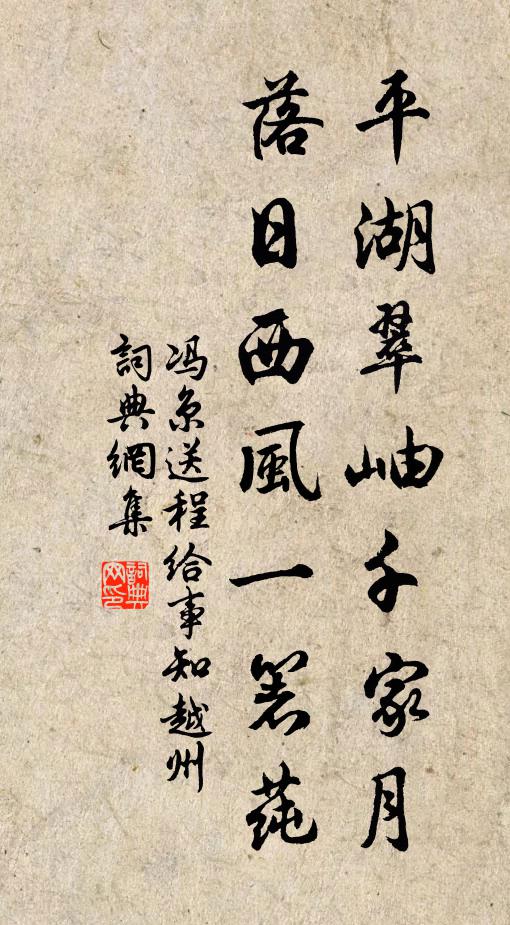 平湖翠岫千家月
落日西風一箸蒓
冯京送程给事知越州
詞典網集
詞典网印